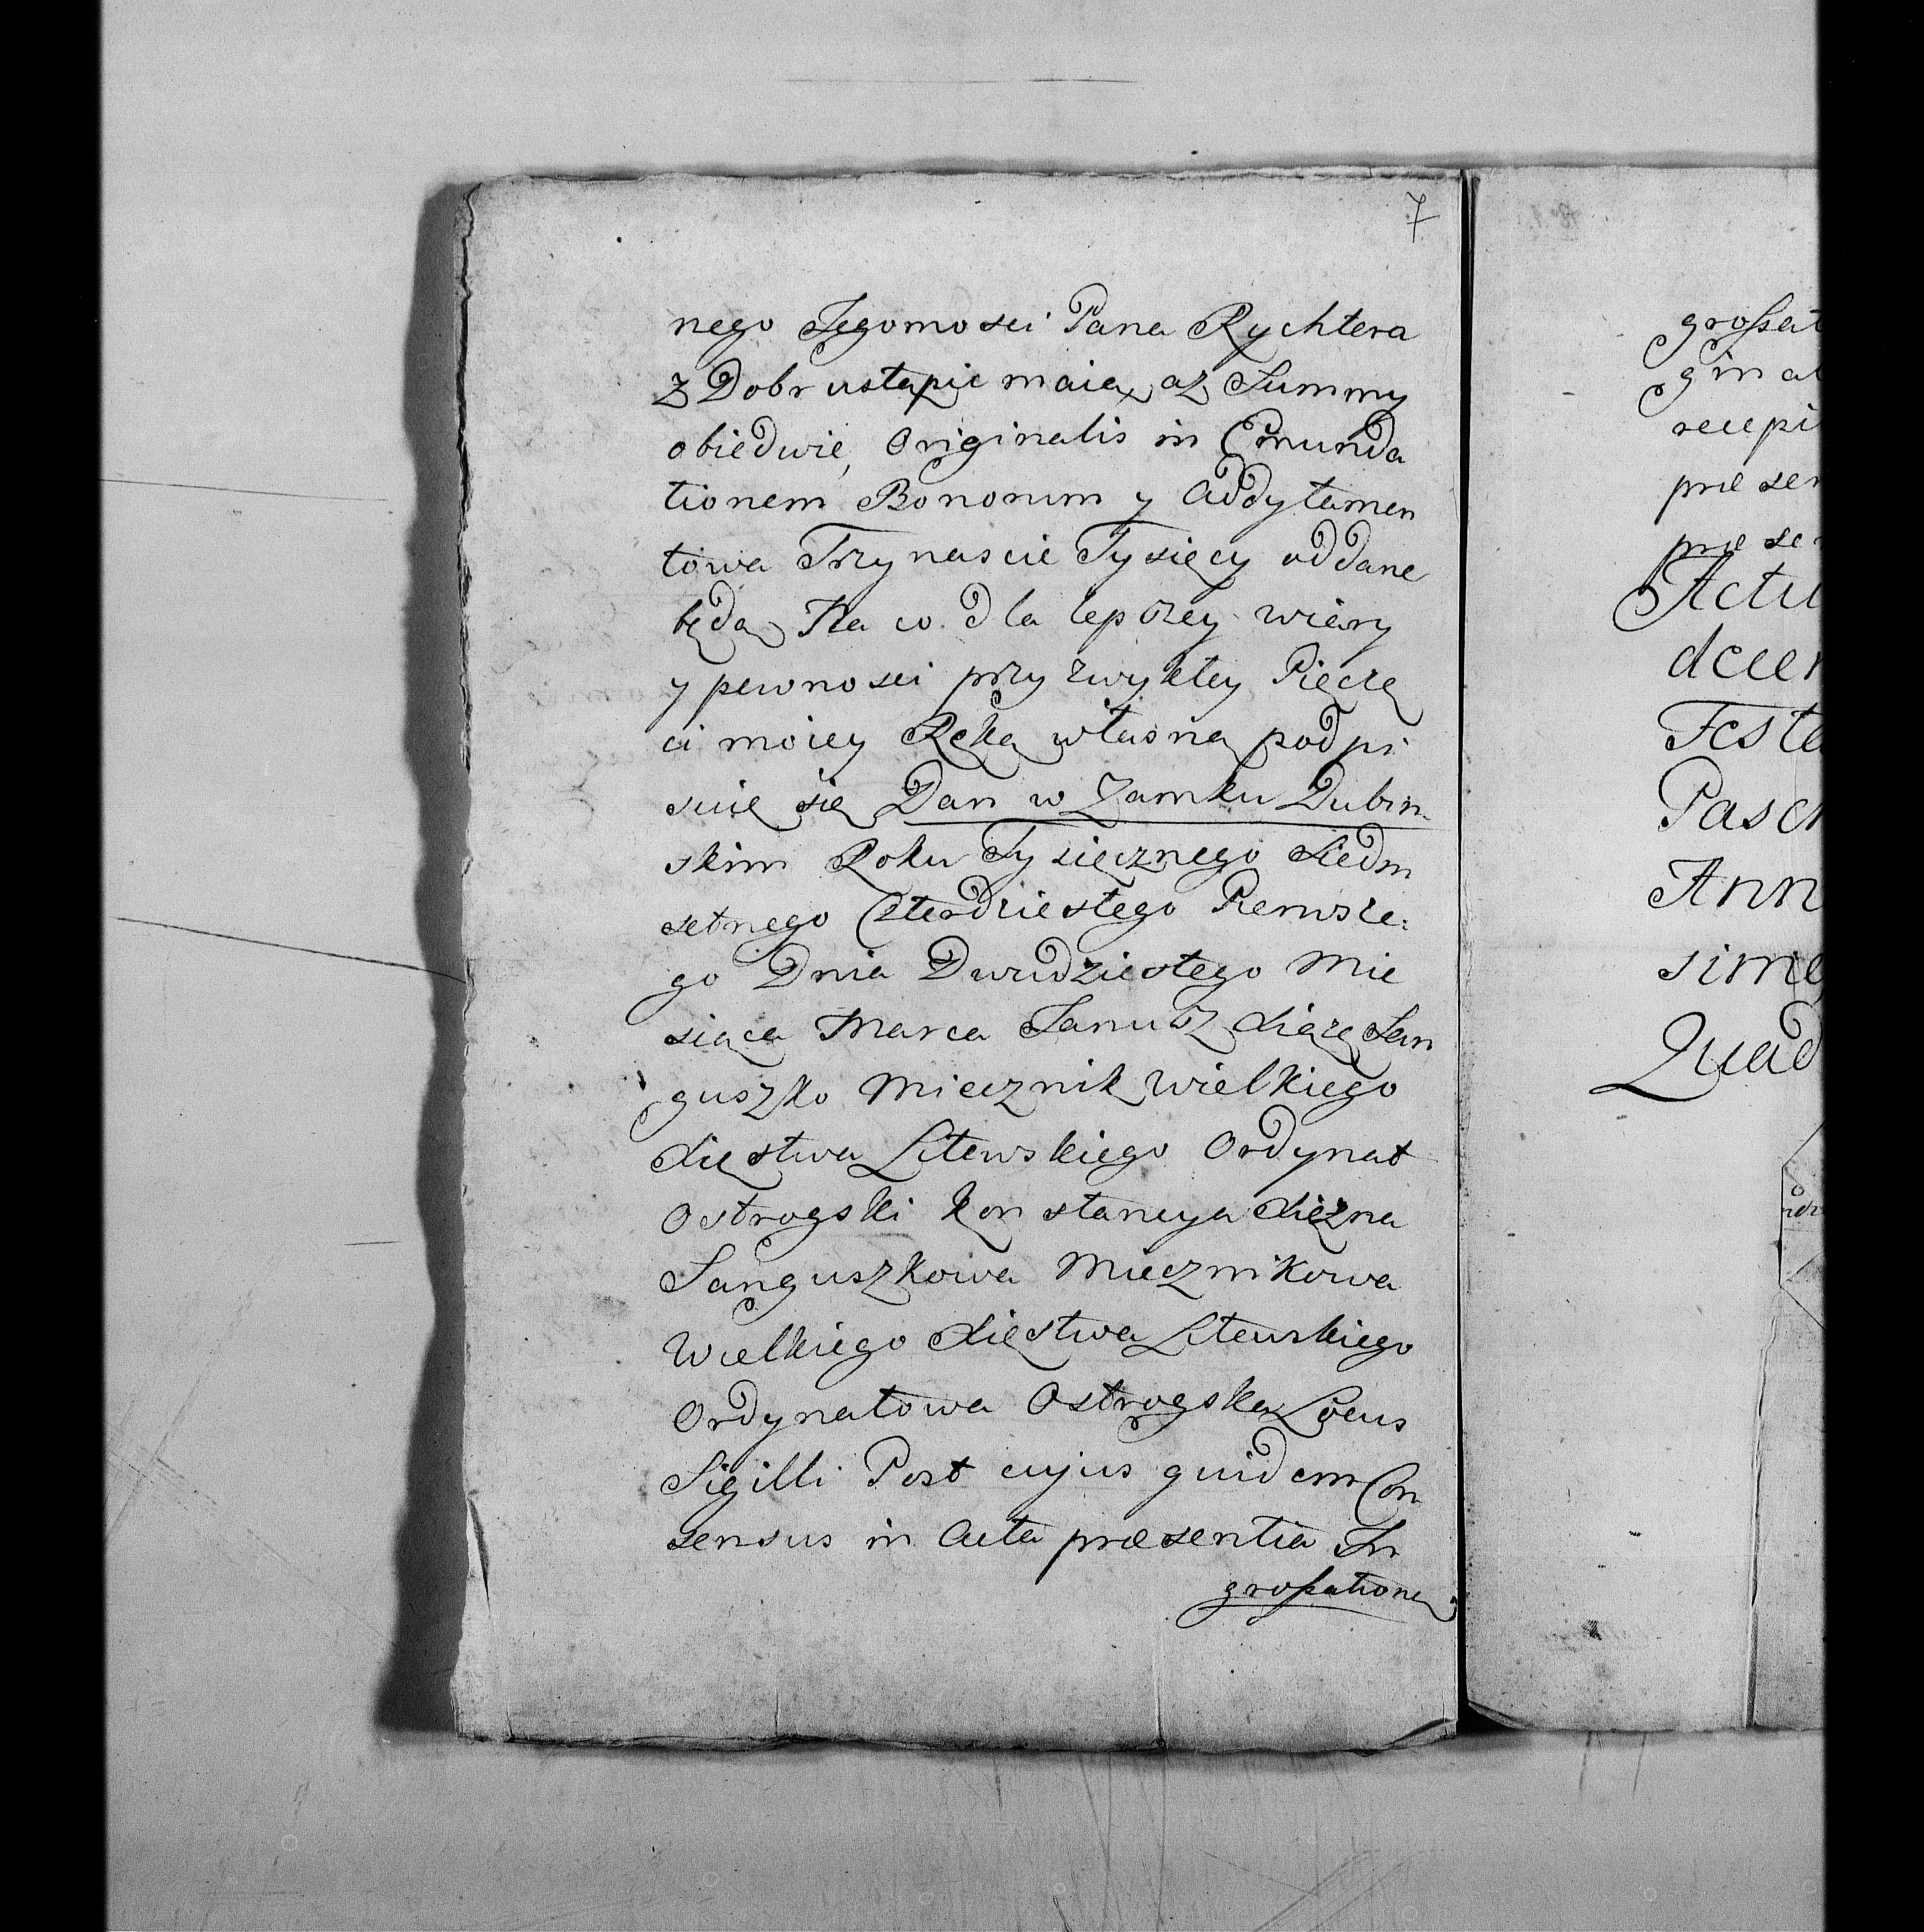 7
nego Jegomosci Pana Rychtera
z Dobr ustąpic maią, aż Summy
obiedwie, Originalis in Emunda
tionem Bonorum y Addytamen
towa Trzynascie Tysięcy oddane
będą Na co dla lepszey wiary
y pewnosci przy zwykłey Pieczę
ci moiey Ręką własną podpi
suię się Dan w Zamku Dubin
skim Roku Tysiącznego Siedm
setnego Czterdziestego Pierwsze:
go Dnia Dwudziestego Mie
siąca Marca Janusz Xiąże San
guszko Miecznik Wielkiego
Xięstwa Litewskiego Ordynat
Ostrogski Konstancya Xiężna
Sanguszkowa Miecznikowa
Wielkiego Xięstwa Litewskiego
Ordynatowa Ostrogska Locus
Sigilli Post cujus quidem Con
sensus in Acta præsentia In
grossationem
grossat
ginal
recepi
præsen
præsen
Actu
dcien
Festa
Pasch
Ann
sime
Quad